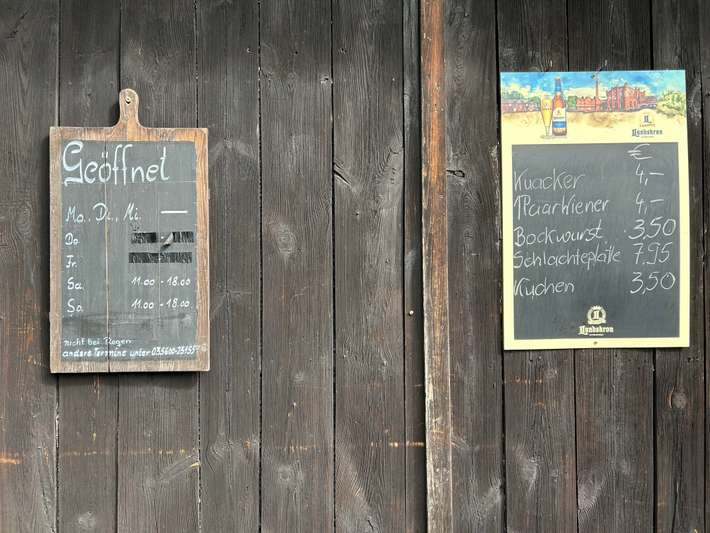 Geöffnet
Mo., Di., Mi. —
Do.
Fr.
Sa. 11.00 - 18.00
So. 11.00 - 18.00
nicht bei Regen
andere Termine unter
€
Knacker 4,-
1 Paar Wiener 4,-
Bockwurst 3,50
Schlachteplatte 7,95
Kuchen 3,50
Landskron
Landskron